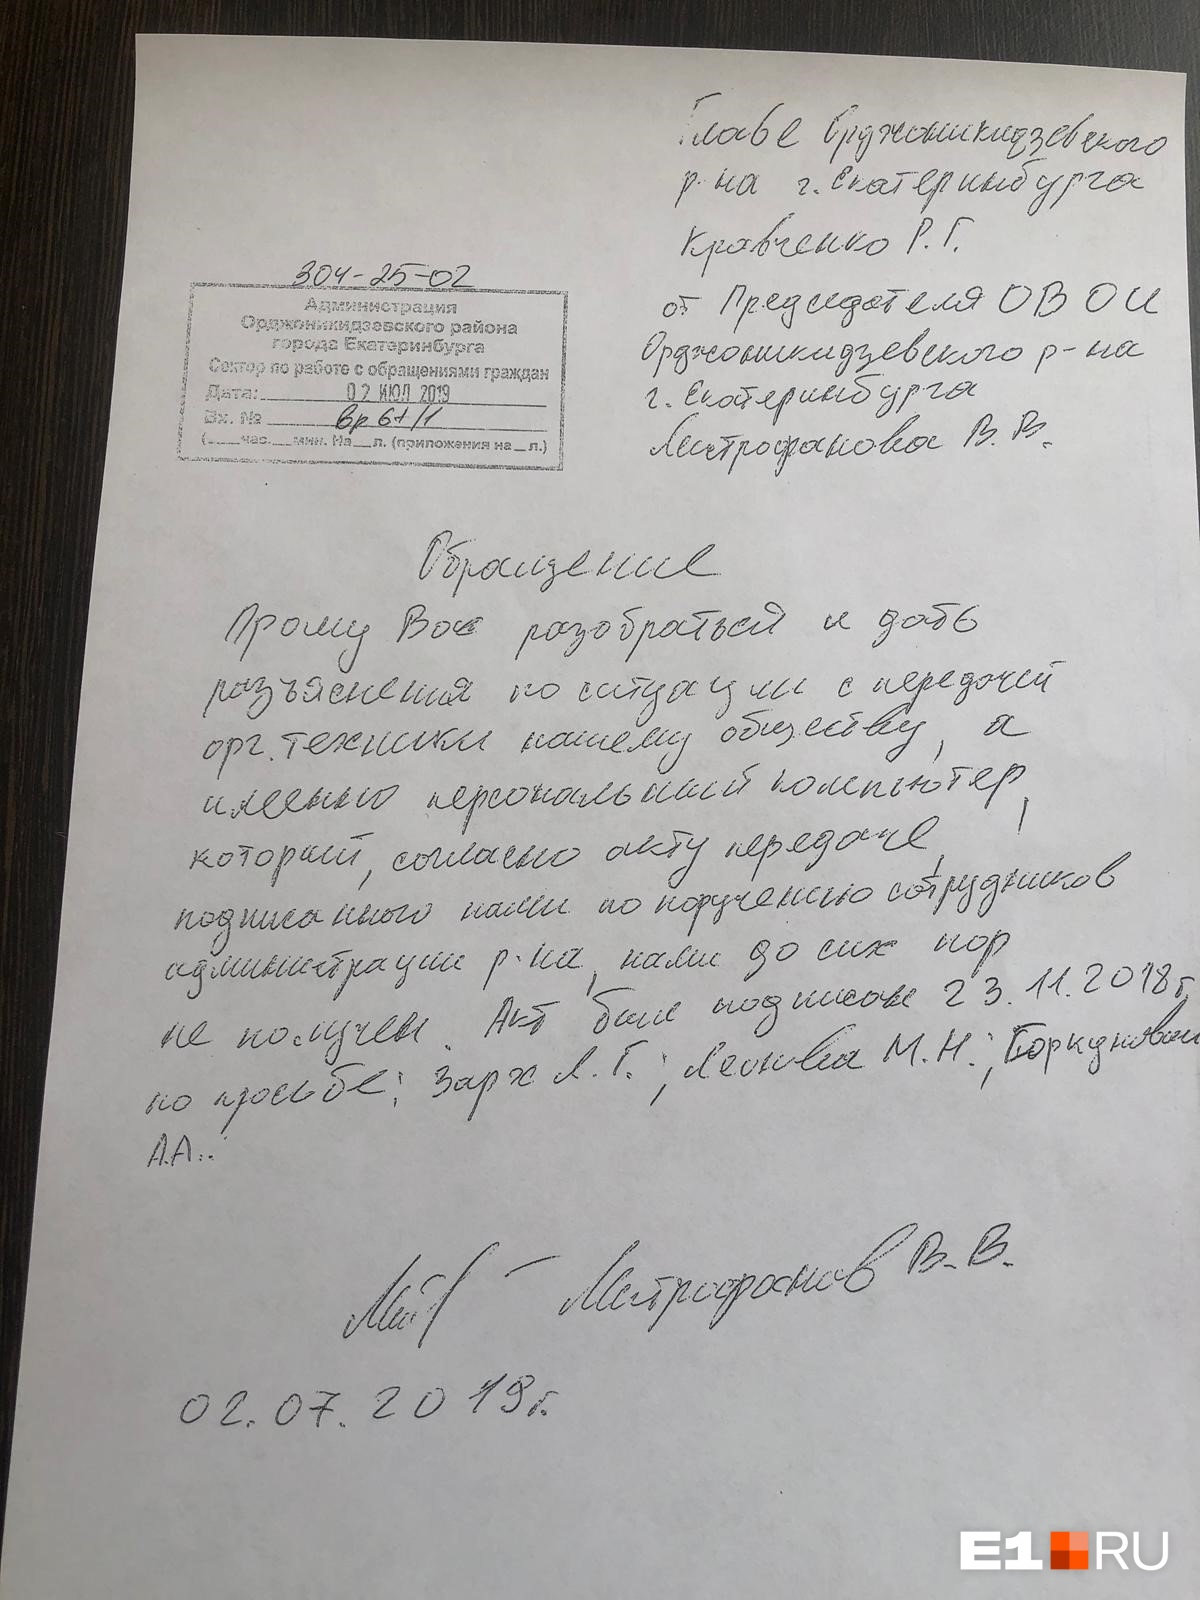 Главе Орджоникидзевского
р-на г. Екатеринбурга
Кравченко Р.Г.
от Председателя ОВОИ
Орджоникидзевского р-на
г. Екатеринбурга
Митрофанова В.В.
304-25-02
Администрация
Орджоникидзевского района
города Екатеринбурга
Сектор по работе с обращениями граждан
Дата: 02 ИЮЛ 2019
Вх. №
(___час.___мин. На__л. (приложения на__л.)
Обращение
Прошу Вас разобраться и дать
разъяснения по ситуации с передачей
орг.техники нашему обществу, а
именно персональный компьютер,
который, согласно акту передаче,
подписанного нами по поручению сотрудников
администрации р-на, нами до сих пор
не получен. Акт был подписан 23.11.2018г.
по просьбе: Зарх Л.Г.; М.Н.; Горкуновой
А.А..
Митрофанов В.В.
02.07.2019г.
E1.RU